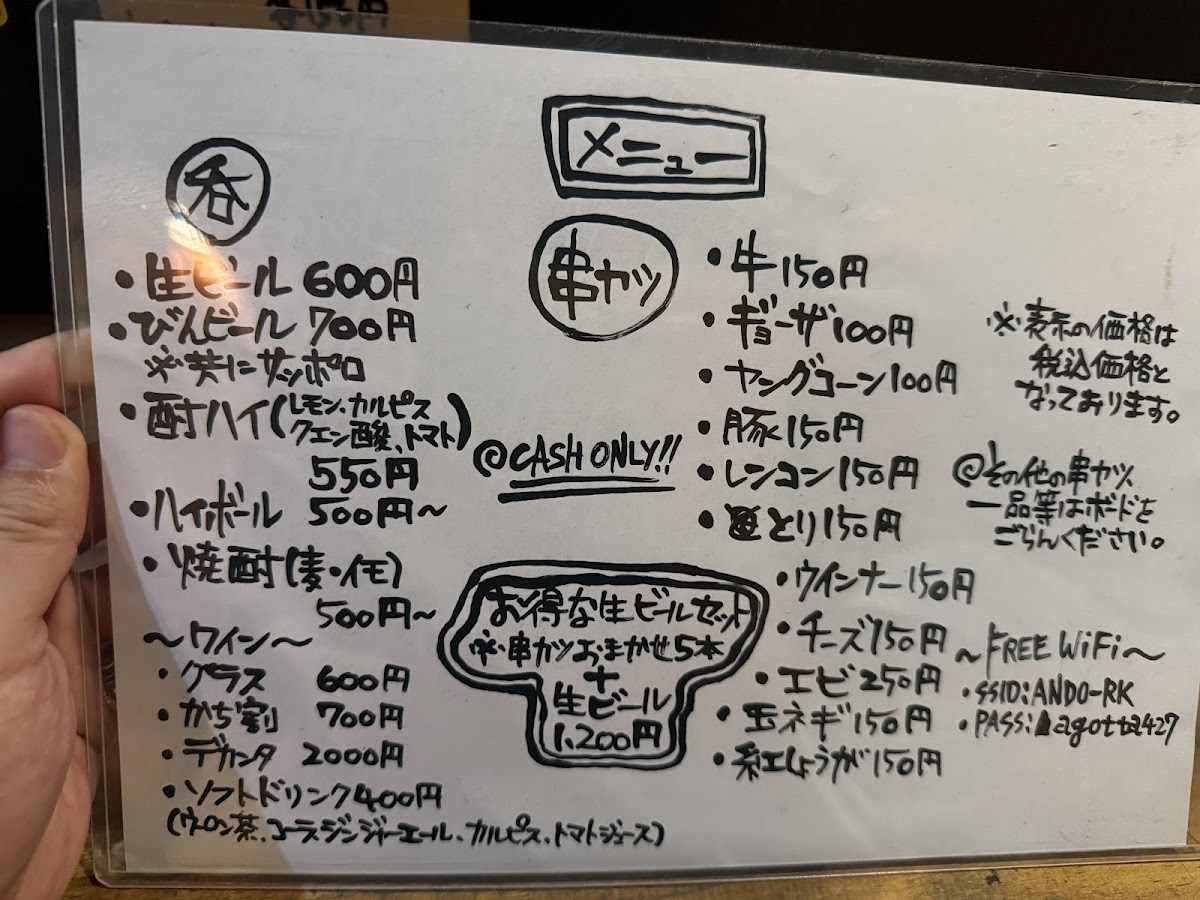 メニュー
呑
・生ビール 600円
・びんビール 700円
※共にサッポロ
・酎ハイ(レモン、カルピス
クエン酸、トマト)
550円
・ハイボール 500円~
・焼酎(麦・イモ)
500円~
~ワイン~
・グラス 600円
・かち割 700円
・デカンタ 2000円
・ソフトドリンク400円
(ウーロン茶、コーラ、ジンジャーエール、カルピス、トマトジュース)
串カツ
@CASH ONLY!!
お得な生ビールセット
※串カツおまかせ5本
+
生ビール
1,200円
・牛150円
・ギョーザ100円
・ヤングコーン100円
・豚150円
・レンコン150円
・とり150円
・ウインナー150円
・チーズ150円
・エビ250円
・玉ネギ150円
・紅しょうが150円
※表示の価格は
税込価格と
なっております。
@その他の串カツ
一品等はボードを
ごらんください。
~FREE WiFi~
・SSID:ANDO-RK
・PASS:agotta427